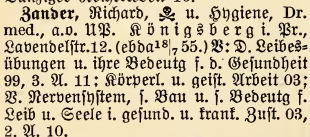 Zander, Richard, ☠ u. Hygiene, Dr.
med., a.o. UP. Königsberg i. Pr.,
Lavendelstr.12. (ebda18|7 55.) V: D. Leibes=
übungen u. ihre Bedeutg f. d. Gesundheit
99, 3. A. 11; Körperl. u. geist. Arbeit 03;
V. Nervensystem, s. Bau u. s. Bedeutg f.
Leib u. Seele i. gesund. u. krank. Zust. 03,
2. A. 10.